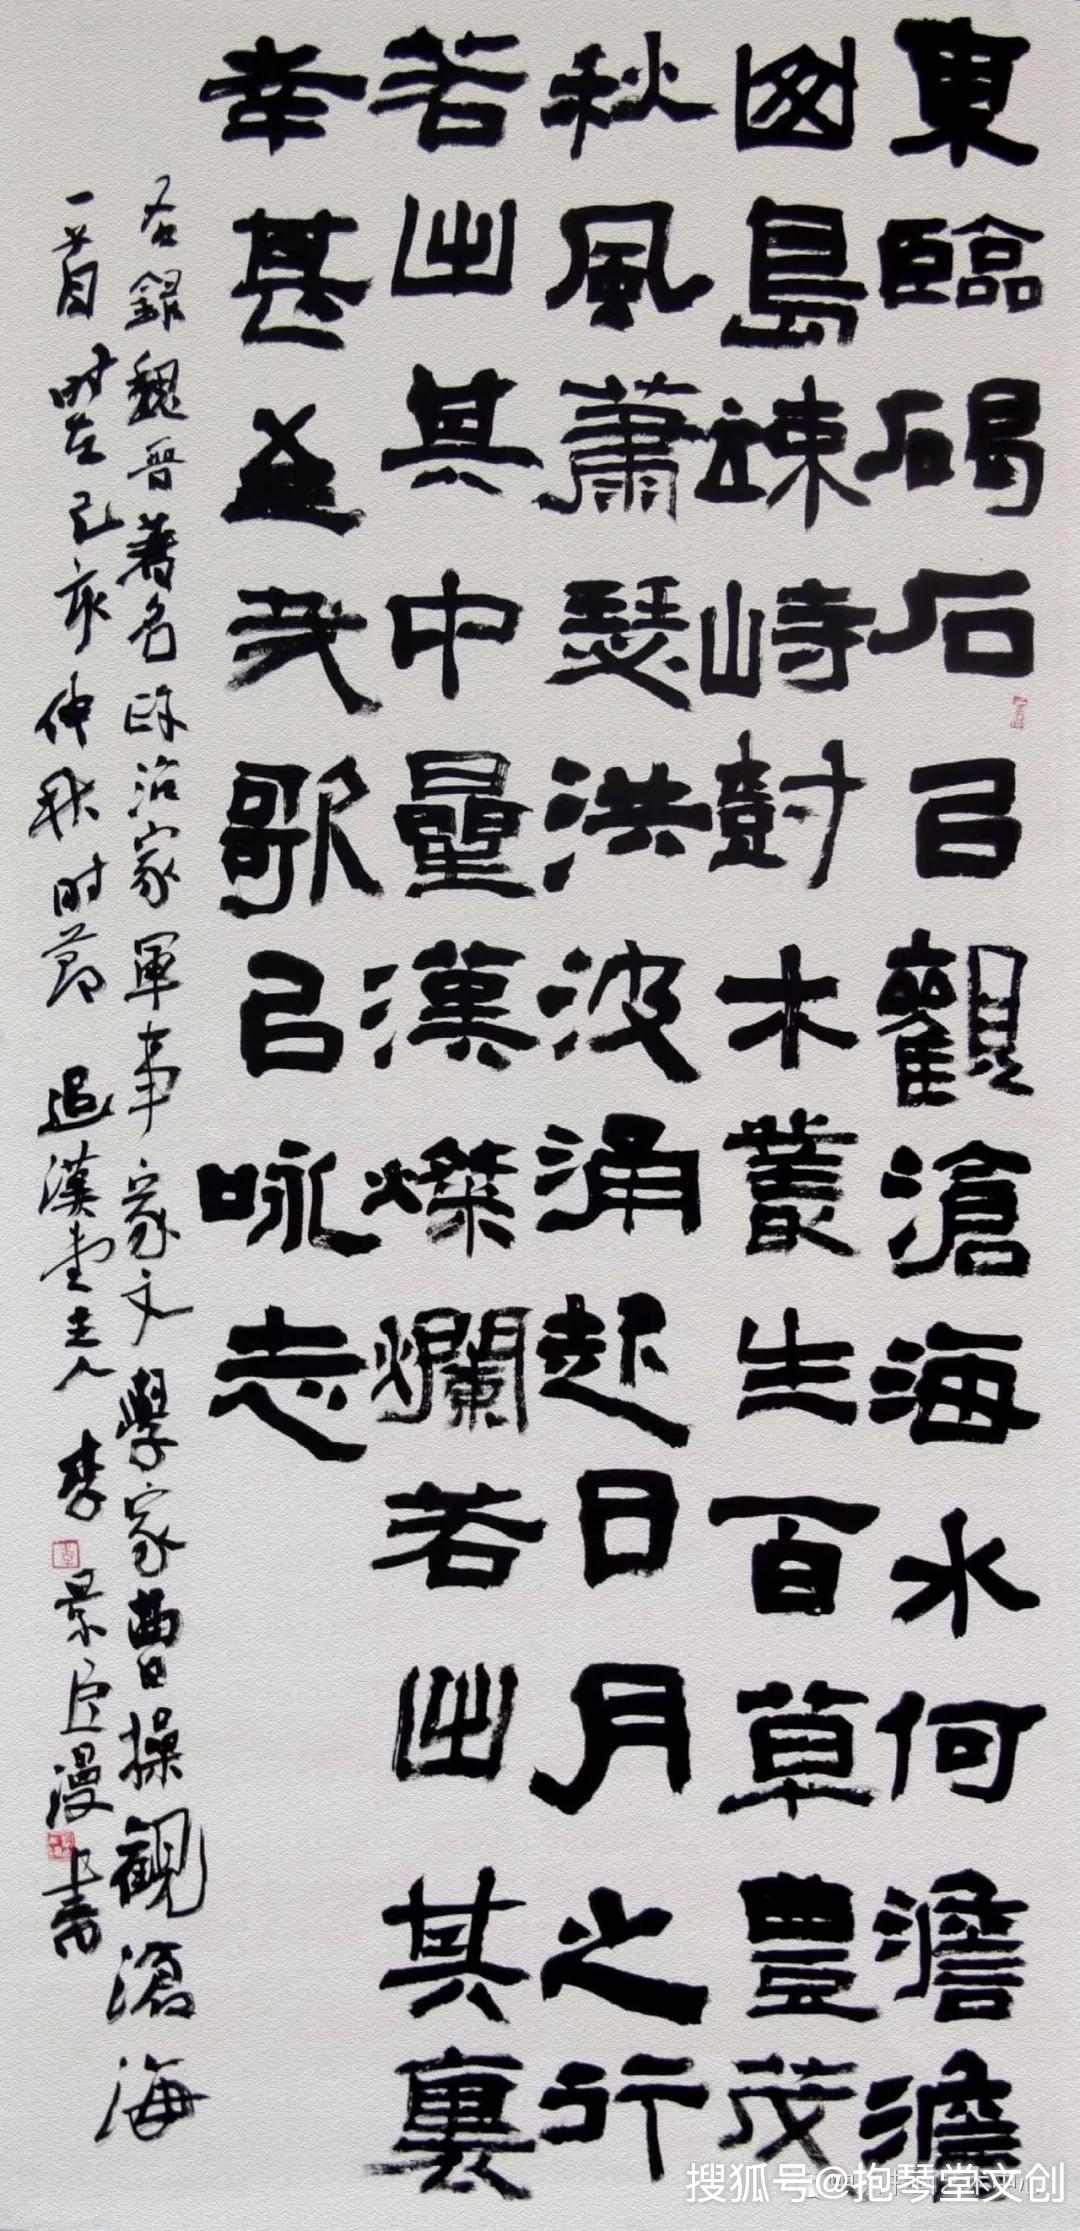 東臨碣石㠯觀滄海水何澹澹
山島竦峙尌木叢生百草豊茂
秋風蕭瑟洪波涌起日月之行
若出其中星漢燦爛若出其裏
幸甚至哉歌㠯咏志
右錄魏晋著名政治家軍事家文學家曹操觀滄海
一首时在己亥仲秋时节追漢堂主人李景臣漫书
搜狐号@抱琴堂文创